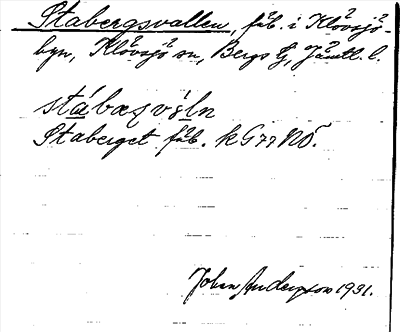 Stabergsvallen, fäb. i Klövsjö-
byn, Klövsjö sn, Bergs tg, Jämtl. l.
stábæsvéln
Staberget fäb. k G77 NÖ.
Johan Anderson 1931.